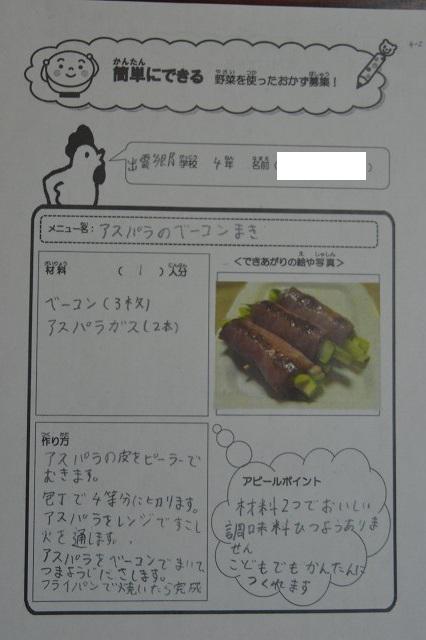 4-2
簡単にできる 野菜を使ったおかず募集！
学校 4年 名前( )
メニュー名：アスパラのベーコンまき
材料 ( 1 )人分
ベーコン(3枚)
アスパラガス(2本)
<できあがりの絵や写真>
作り方
アスパラの皮をピーラーで
むきます。
包丁で4等分に切ります。
アスパラをレンジですこし
火を通します。
アスパラをベーコンでまいて
つまようじでさします。
フライパンで焼いたら完成
アピールポイント
材料2つでおいしい
調味料ひつようありま
せん
こどもでもかんたんに
つくれます